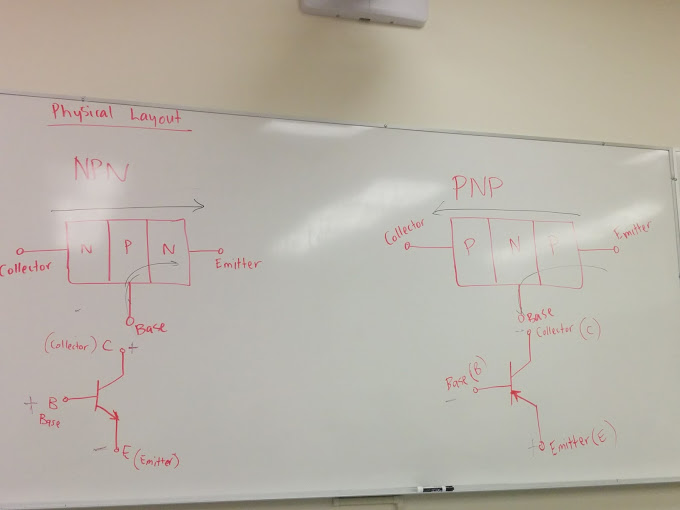 Physical Layout
NPN
Collector
N P N
Emitter
Base
(Collector) C +
+ B
Base
- E (Emitter)
PNP
Collector
P N P
Emitter
Base
Collector (C)
Base (B)
-
+ Emitter (E)